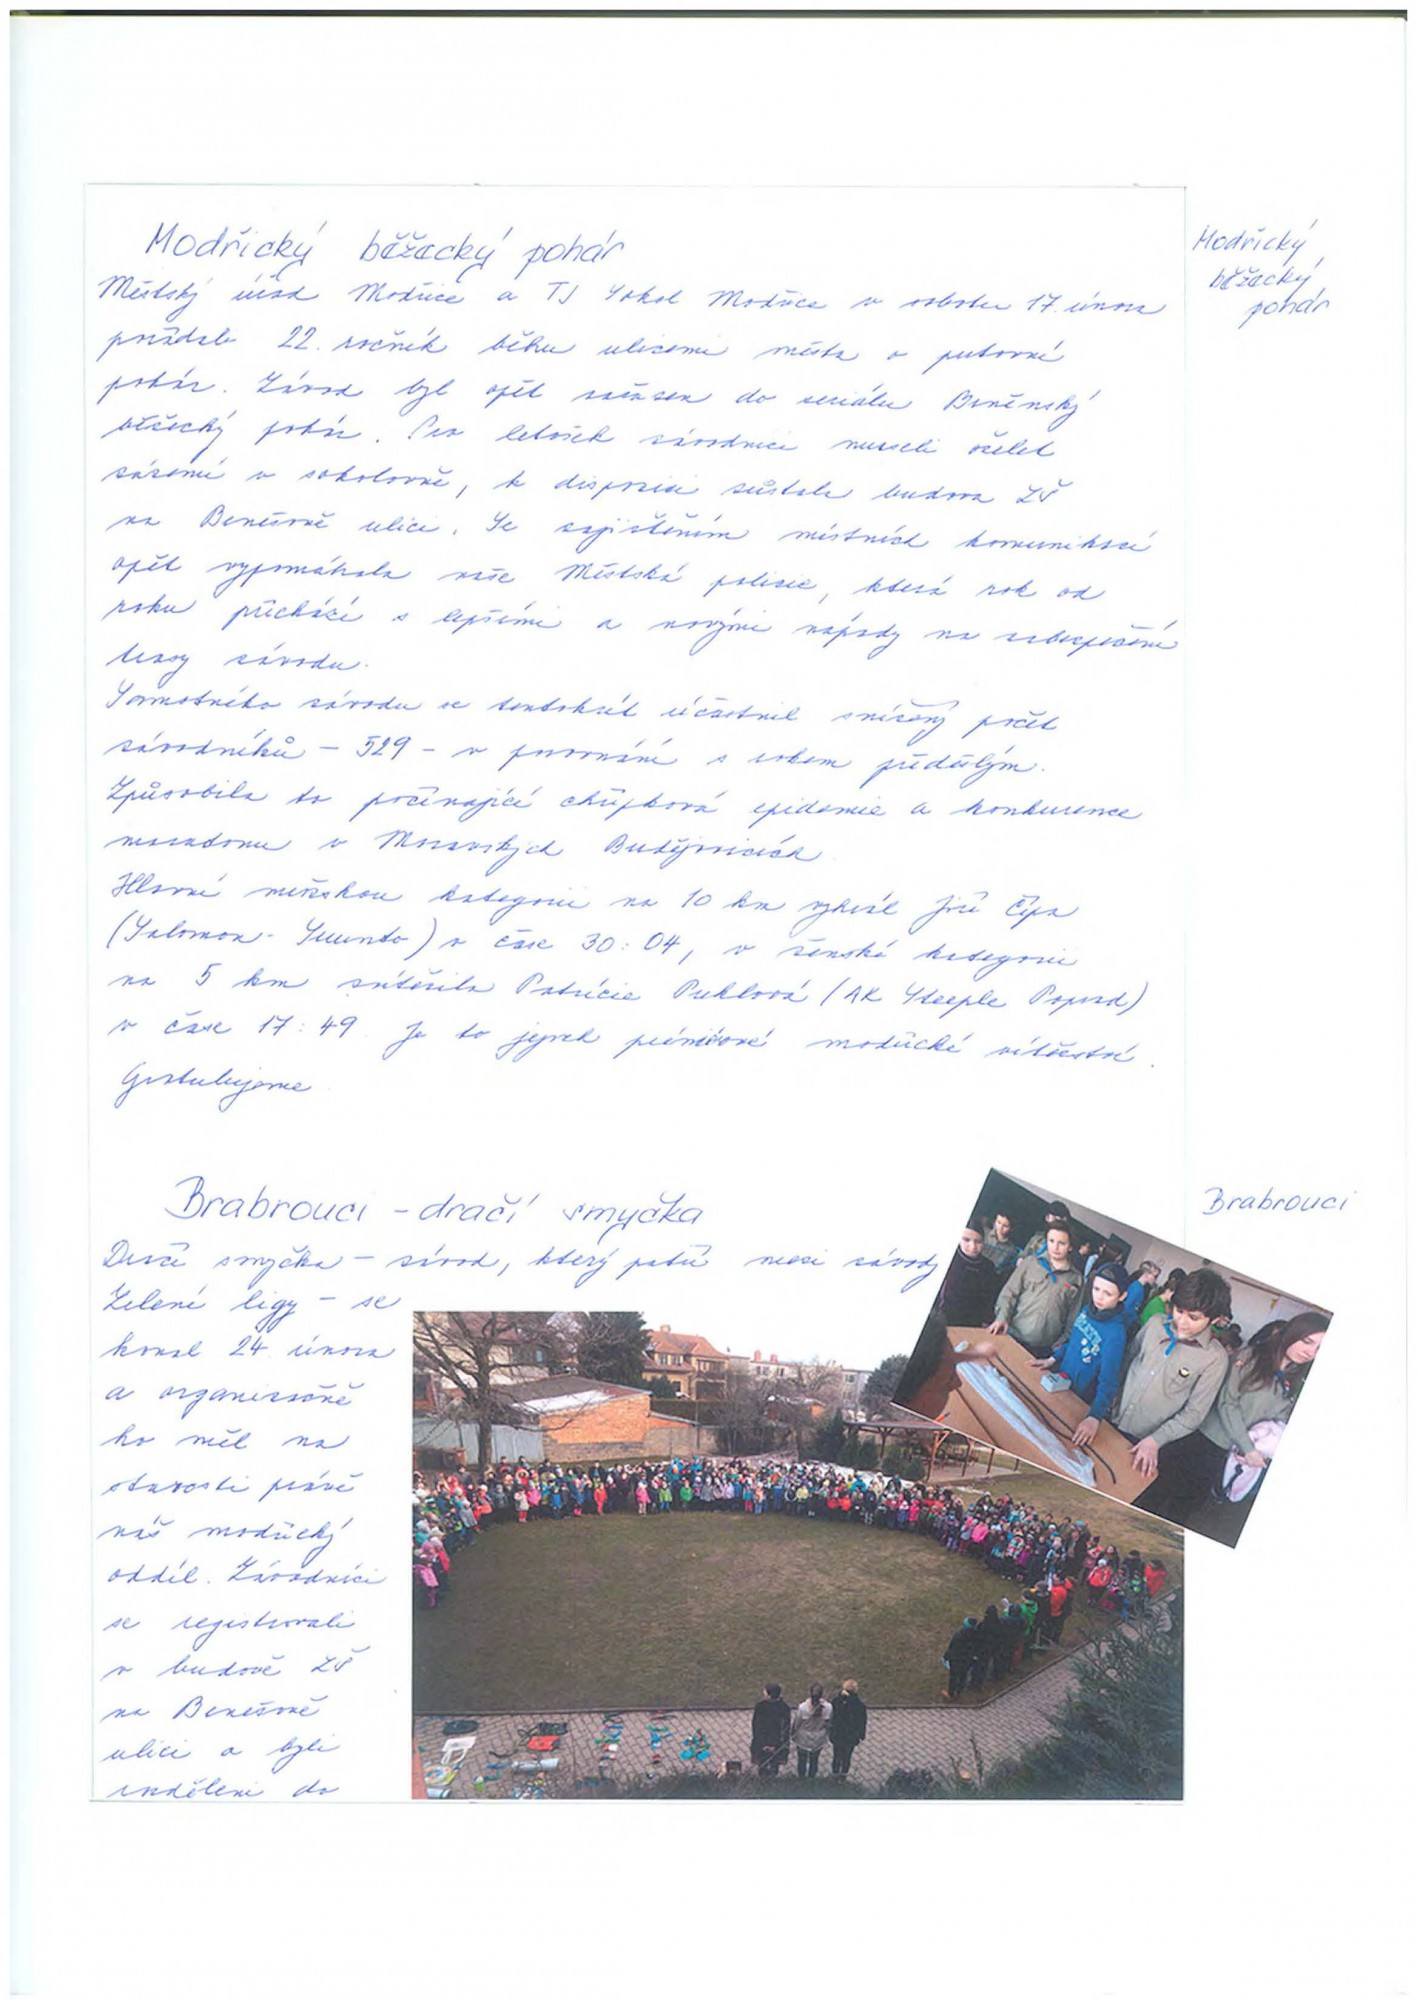 Modřický běžecký pohár
Modřický
běžecký
pohár
Městský úřad Modřice a TJ Sokol Modřice v sobotu 17. února
pořádali 22. ročník běhu ulicemi města o putovní
pohár. Závod byl opět zařazen do seriálu Brněnský
běžecký pohár. Pro letošek závodníci museli oželet
zázemí v sokolovně, k dispozici zůstala budova ZŠ
na Benešově ulici. Se zajištěním místních komunikací
opět vypomáhala naše Městská policie, která rok od
roku přichází s lepšími a novými nápady na zabezpečení
trasy závodu.
Samotného závodu se tentokrát účastnil snížený počet
závodníků – 529 – v porovnání s rokem předešlým.
Způsobila to počínající chřipková epidemie a konkurence
maratonu v Moravských Budějovicích
Hlavní mužskou kategorii na 10 km vyhrál Jiří Čípa
(Salomon - Suunto) v čase 30:04, v ženské kategorii
na 5 km zvítězila Patricie Puklová (AK Steeple Poprad)
v čase 17:49. Je to jejich premiérové modřické vítězství.
Gratulujeme
Brabrouci – dračí smyčka
Brabrouci
Dračí smyčka – závod, který patří mezi závody
Zelené ligy – se
konal 24. února
a organizačně
ho měl na
starosti právě
náš modřický
oddíl. Závodníci
se registrovali
v budově ZŠ
na Benešově
ulici a byli
rozděleni do